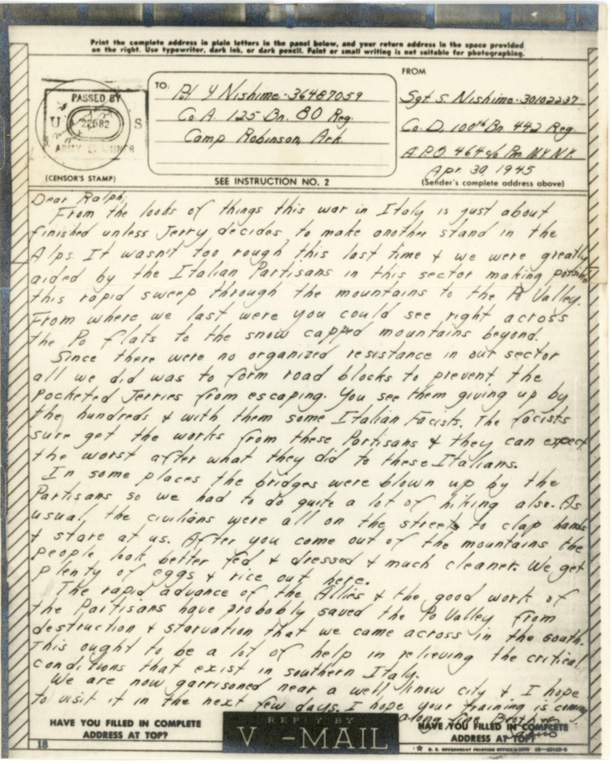 Print the complete address in plain letters in the panel below, and your return address in the space provided
on the right. Use typewriter, dark ink, or dark pencil. Faint or small writing is not suitable for photographing.
PASSED BY
U S
22682
ARMY EXAMINER
(CENSOR'S STAMP)
TO:
Pvt Y Nishimo-36487059
Co A 125 Bn. 80 Reg.
Camp Robinson, Ark.
SEE INSTRUCTION NO. 2
FROM
Sgt S Nishimo-30102237
Co. D, 100th Bn 442 Reg.
A.P.O. 464 c/o Pm. N.Y. N.Y.
Apr. 30, 1945
(Sender's complete address above)
Dear Ralph,
From the looks of things this war in Italy is just about
finished unless Jerry decides to make another stand in the
Alps. It wasn't too rough this last time & we were greatly
aided by the Italian Partisans in this sector making possible
this rapid sweep through the mountains to the Po Valley.
From where we last were you could see right across
the Po flats to the snow capped mountains beyond.
Since there were no organized resistance in our sector
all we did was to form road blocks to prevent the
pocketed Jerries from escaping. You see them giving up by
the hundreds & with them some Italian Facists. The facists
sure get the works from these Partisans & they can expect
the worst after what they did to these Italians.
In some places the bridges were blown up by the
Partisans so we had to do quite a lot of hiking also. As
usual, the civilians were all on the streets to clap hands
& stare at us. After you come out of the mountains the
people look better fed & dressed & much cleaner. We get
plenty of eggs & rice out here.
The rapid advance of the Allies & the good work of
the Partisans have probably saved the Po Valley from
destruction & starvation that we came across in the south.
This ought to be a lot of help in relieving the critical
conditions that exist in southern Italy.
We are now garrisoned near a well know city & I hope
to visit it in the next few days. I hope your training is coming
along fine. Brother
HAVE YOU FILLED IN COMPLETE
ADDRESS AT TOP?
REPLY BY
V-MAIL
HAVE YOU FILLED IN COMPLETE
ADDRESS AT TOP?
18
U. S. GOVERNMENT PRINTING OFFICE